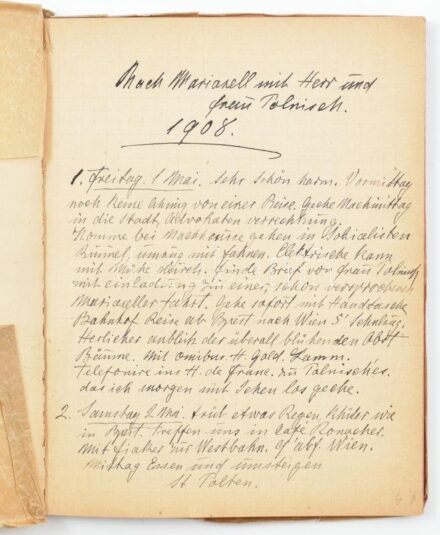 Nach Mariazell mit Herr und
Frau Polnisch.
1908.
1. Freitag. 1 Mai. Sehr schön warm. Vormittag
noch keine Ahnug von einer Reise. Gehe Nachmittag
in die Stadt, Advokaten verrechnung.
Komme bei gehen in Sozialisten
Rummel, umzug mit Fahnen. Elektrische kann
mit Mühe durch. finde Brief von Frau Polnisch
mit einladung zu einer, schon versprochenen
Mariazeller fahrt. Gehe sofort mit Handtasche
Bahnhof Reise ab nach Wien 5 Schnlzug.
Herlicher anblik der überall blühenden Obst
Bäume. Mit omnibus H. Gold. Lamm.
Telefonire ins H. de france. zu Polnisch's.
das ich morgen mit Ihen los gehe.
2. Samstag 2 Mai. früt etwas Regen kühler wie
in . treffen uns in Café Ronacher.
Mit fiaker zur Westbahn. 9 abf. Wien.
Mittag Essen und umsteigen
St Pölten.